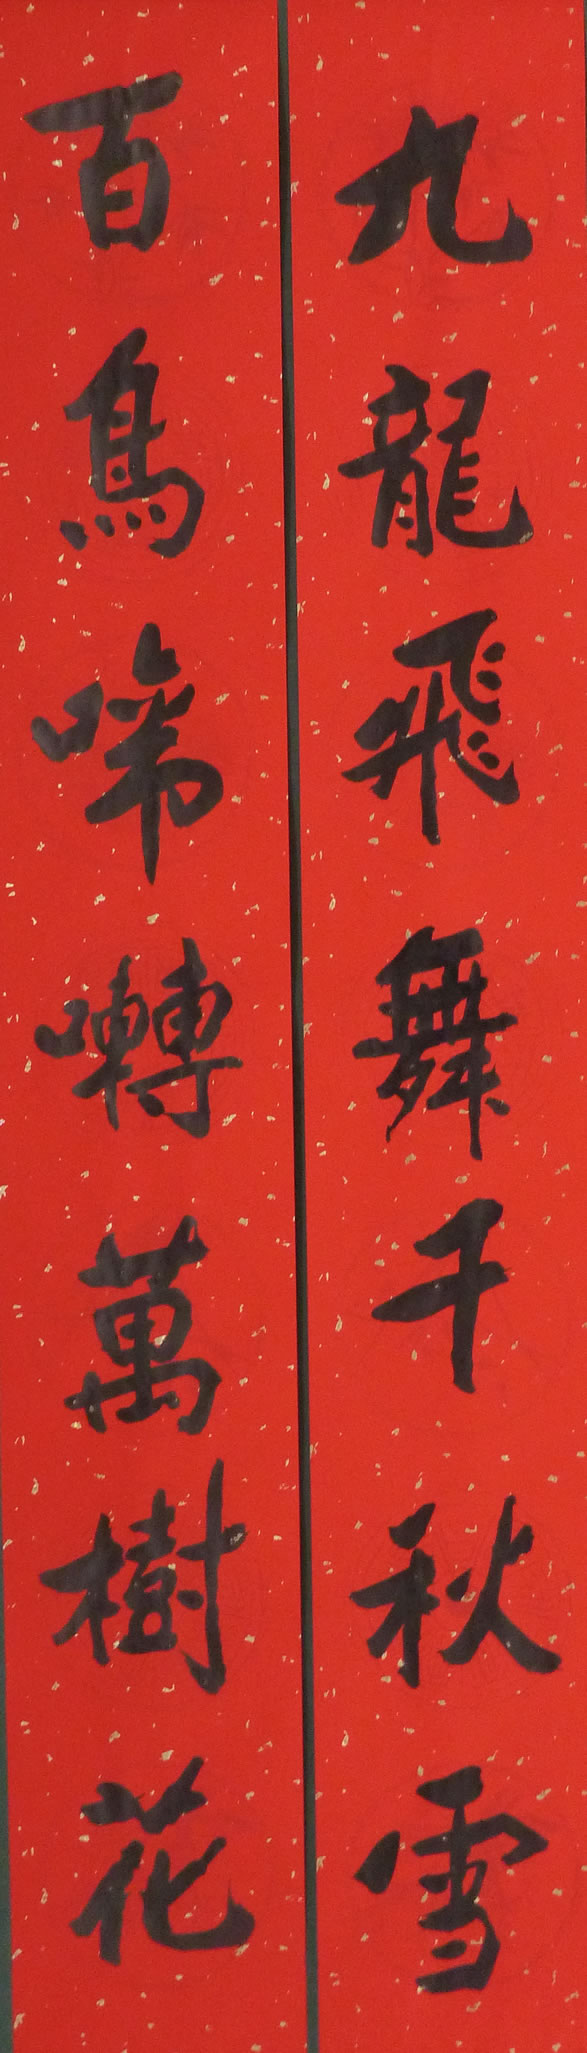 九龍飛舞千秋雪
百鳥啼囀萬樹花